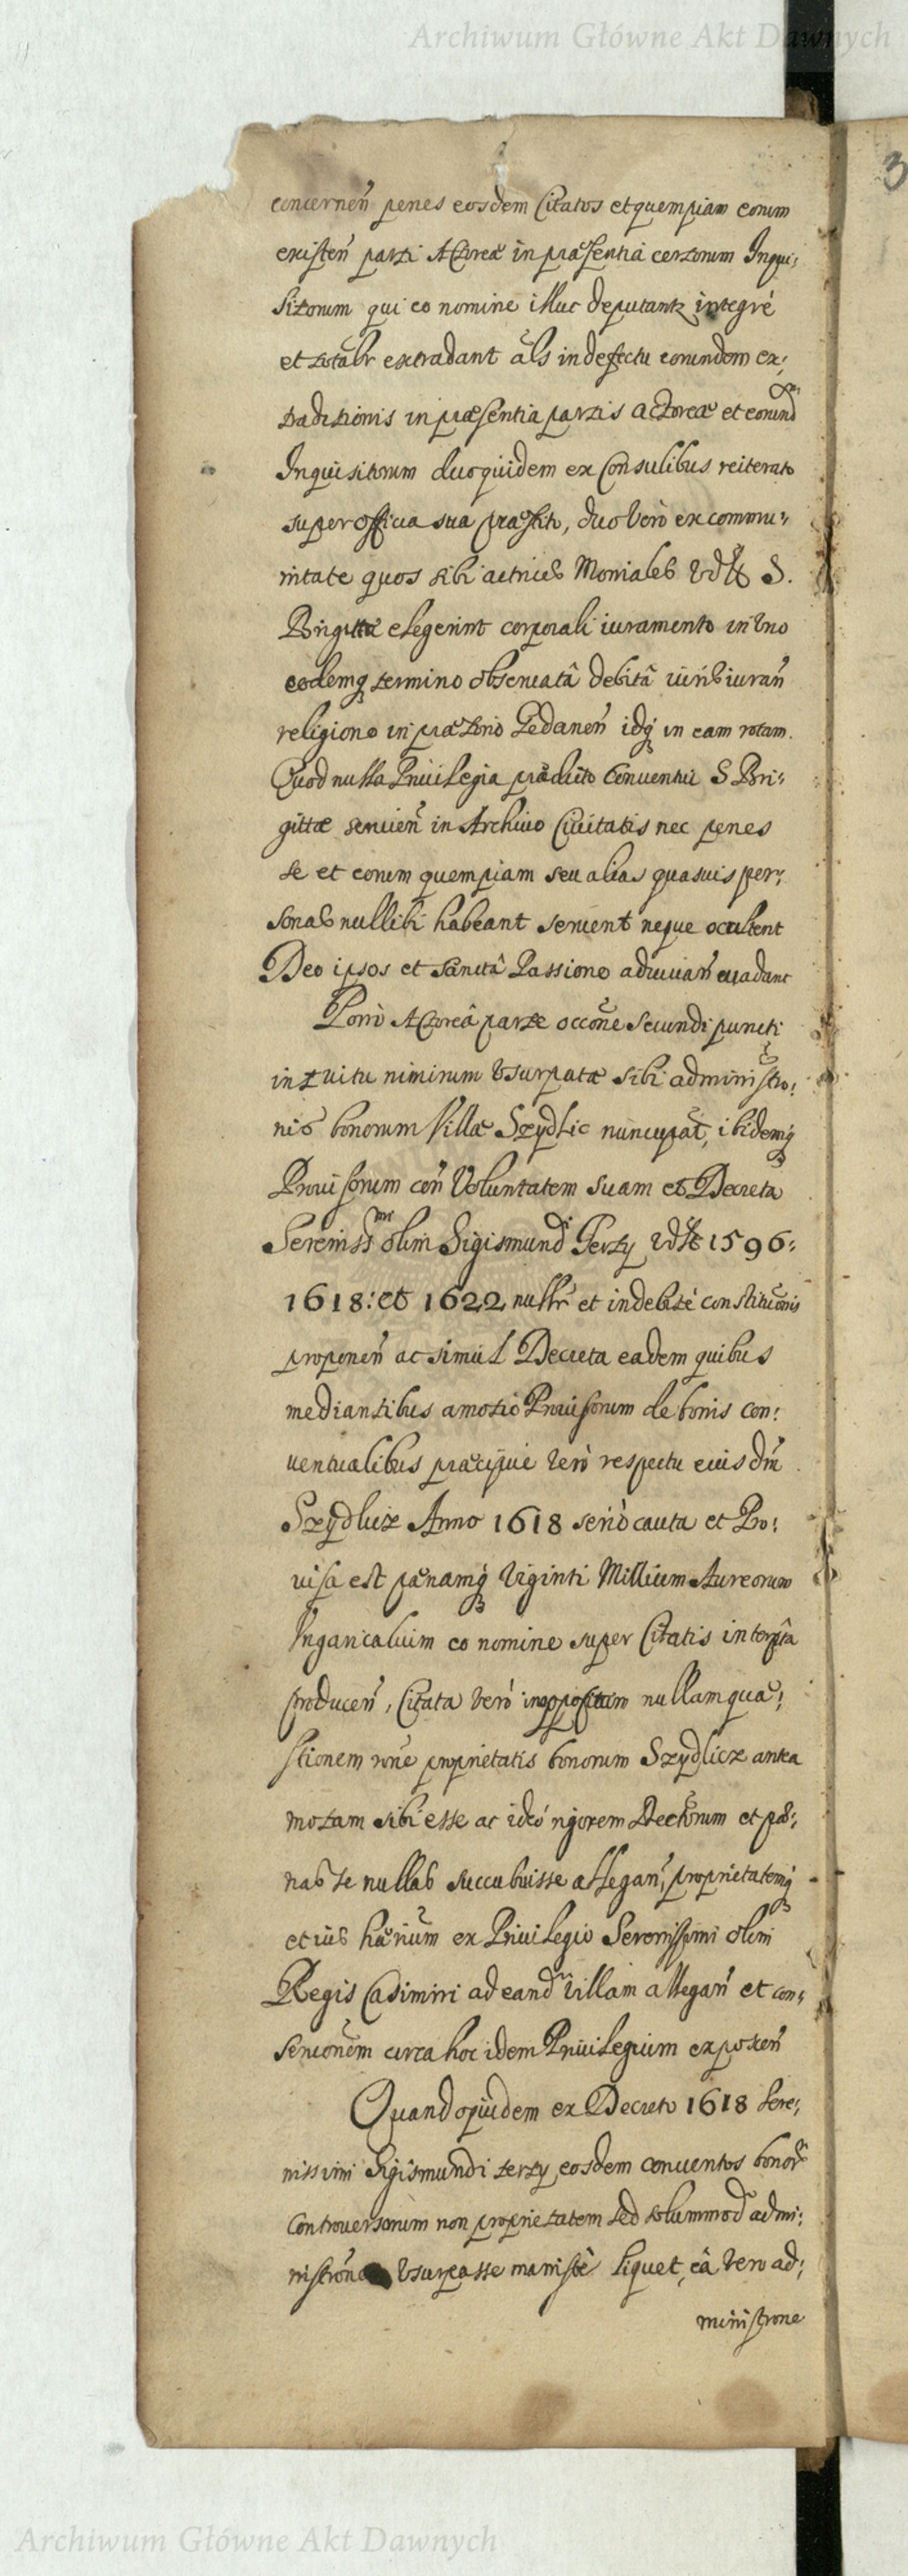 Archiwum Główne Akt Dawnych
3
concerneñ penes eosdem Citatos et quempiam eorum
existeñ parti Actoreæ in præsentia certorum Inqui;
sitorum qui eo nomine illuc deputantr integrè
et totalr extradant als in defectu eorundem ex;
traditionis in præsentia partis actoreæ et eorund
Inquisitorum duo quidem ex Consulibus reiterato
super officia sua præstito, duo verò ex commu;
nitate quos sibi actrices Moniales S.
Brigittæ elegerint corporali iuramento in vno
eodemq termino obseruatâ debitâ iurisiurañ
religione in prætorio Gedaneñ idq in eam rotam.
Quod nulla Priuilegia prædicto Conuentui S Bri;
gittæ seruieñ in Archiuo Ciuitatis nec penes
se et eorum quempiam seu alias quasuis per;
sonas nullibi habeant seruent neque occultent
Deo ipsos et Sanctâ Passione adiuuañ euadant
Porrò Actoreâ parte occoñe secundi puncti
intuitu nimirum vsurpatæ sibi administro;
nis bonorum Villæ Szydlic nuncupat, ibidemq
Prouisorum coñ Voluntatem suam et Decreta
Sereniss mi olim Sigismundi Tertÿ 1596:
1618: et 1622 nullr et indebitè constitutionis
proponeñ ac simul Decreta eadem quibus
mediantibus amotio Prouisorum de bonis con;
uentualibus præcipue verò respectu eiusdm
Szydlicz Anno 1618 seriò cauta et Pro;
uisa est pœnamq Viginti Millium Aureorum
Vngaricaluum eo nomine super Citatis interpta
produceñ, Citata verò in oppositum nullam quæ;
stionem roñe proprietatis bonorum Szydlicz antea
motam sibi esse ac ideò rigorem Decretorum et pœ;
nas se nullas succubuisse allegañ, proprietatemq
et ius hærium ex Priuilegio Serenissimi olim
Regis Casimiri ad eand villam allegañ et con;
sensionem circa hoc idem Priuilegium exponeñ
Quandoquidem ex Decreto 1618 Sere;
nissimi Sigismundi tertÿ eosdem conuentos bonor
controuersorum non proprietatem sed solummod admi;
nistrone vsurpasse manifstè liquet, eâ vero ad;
ministrone
Archiwum Główne Akt Dawnych